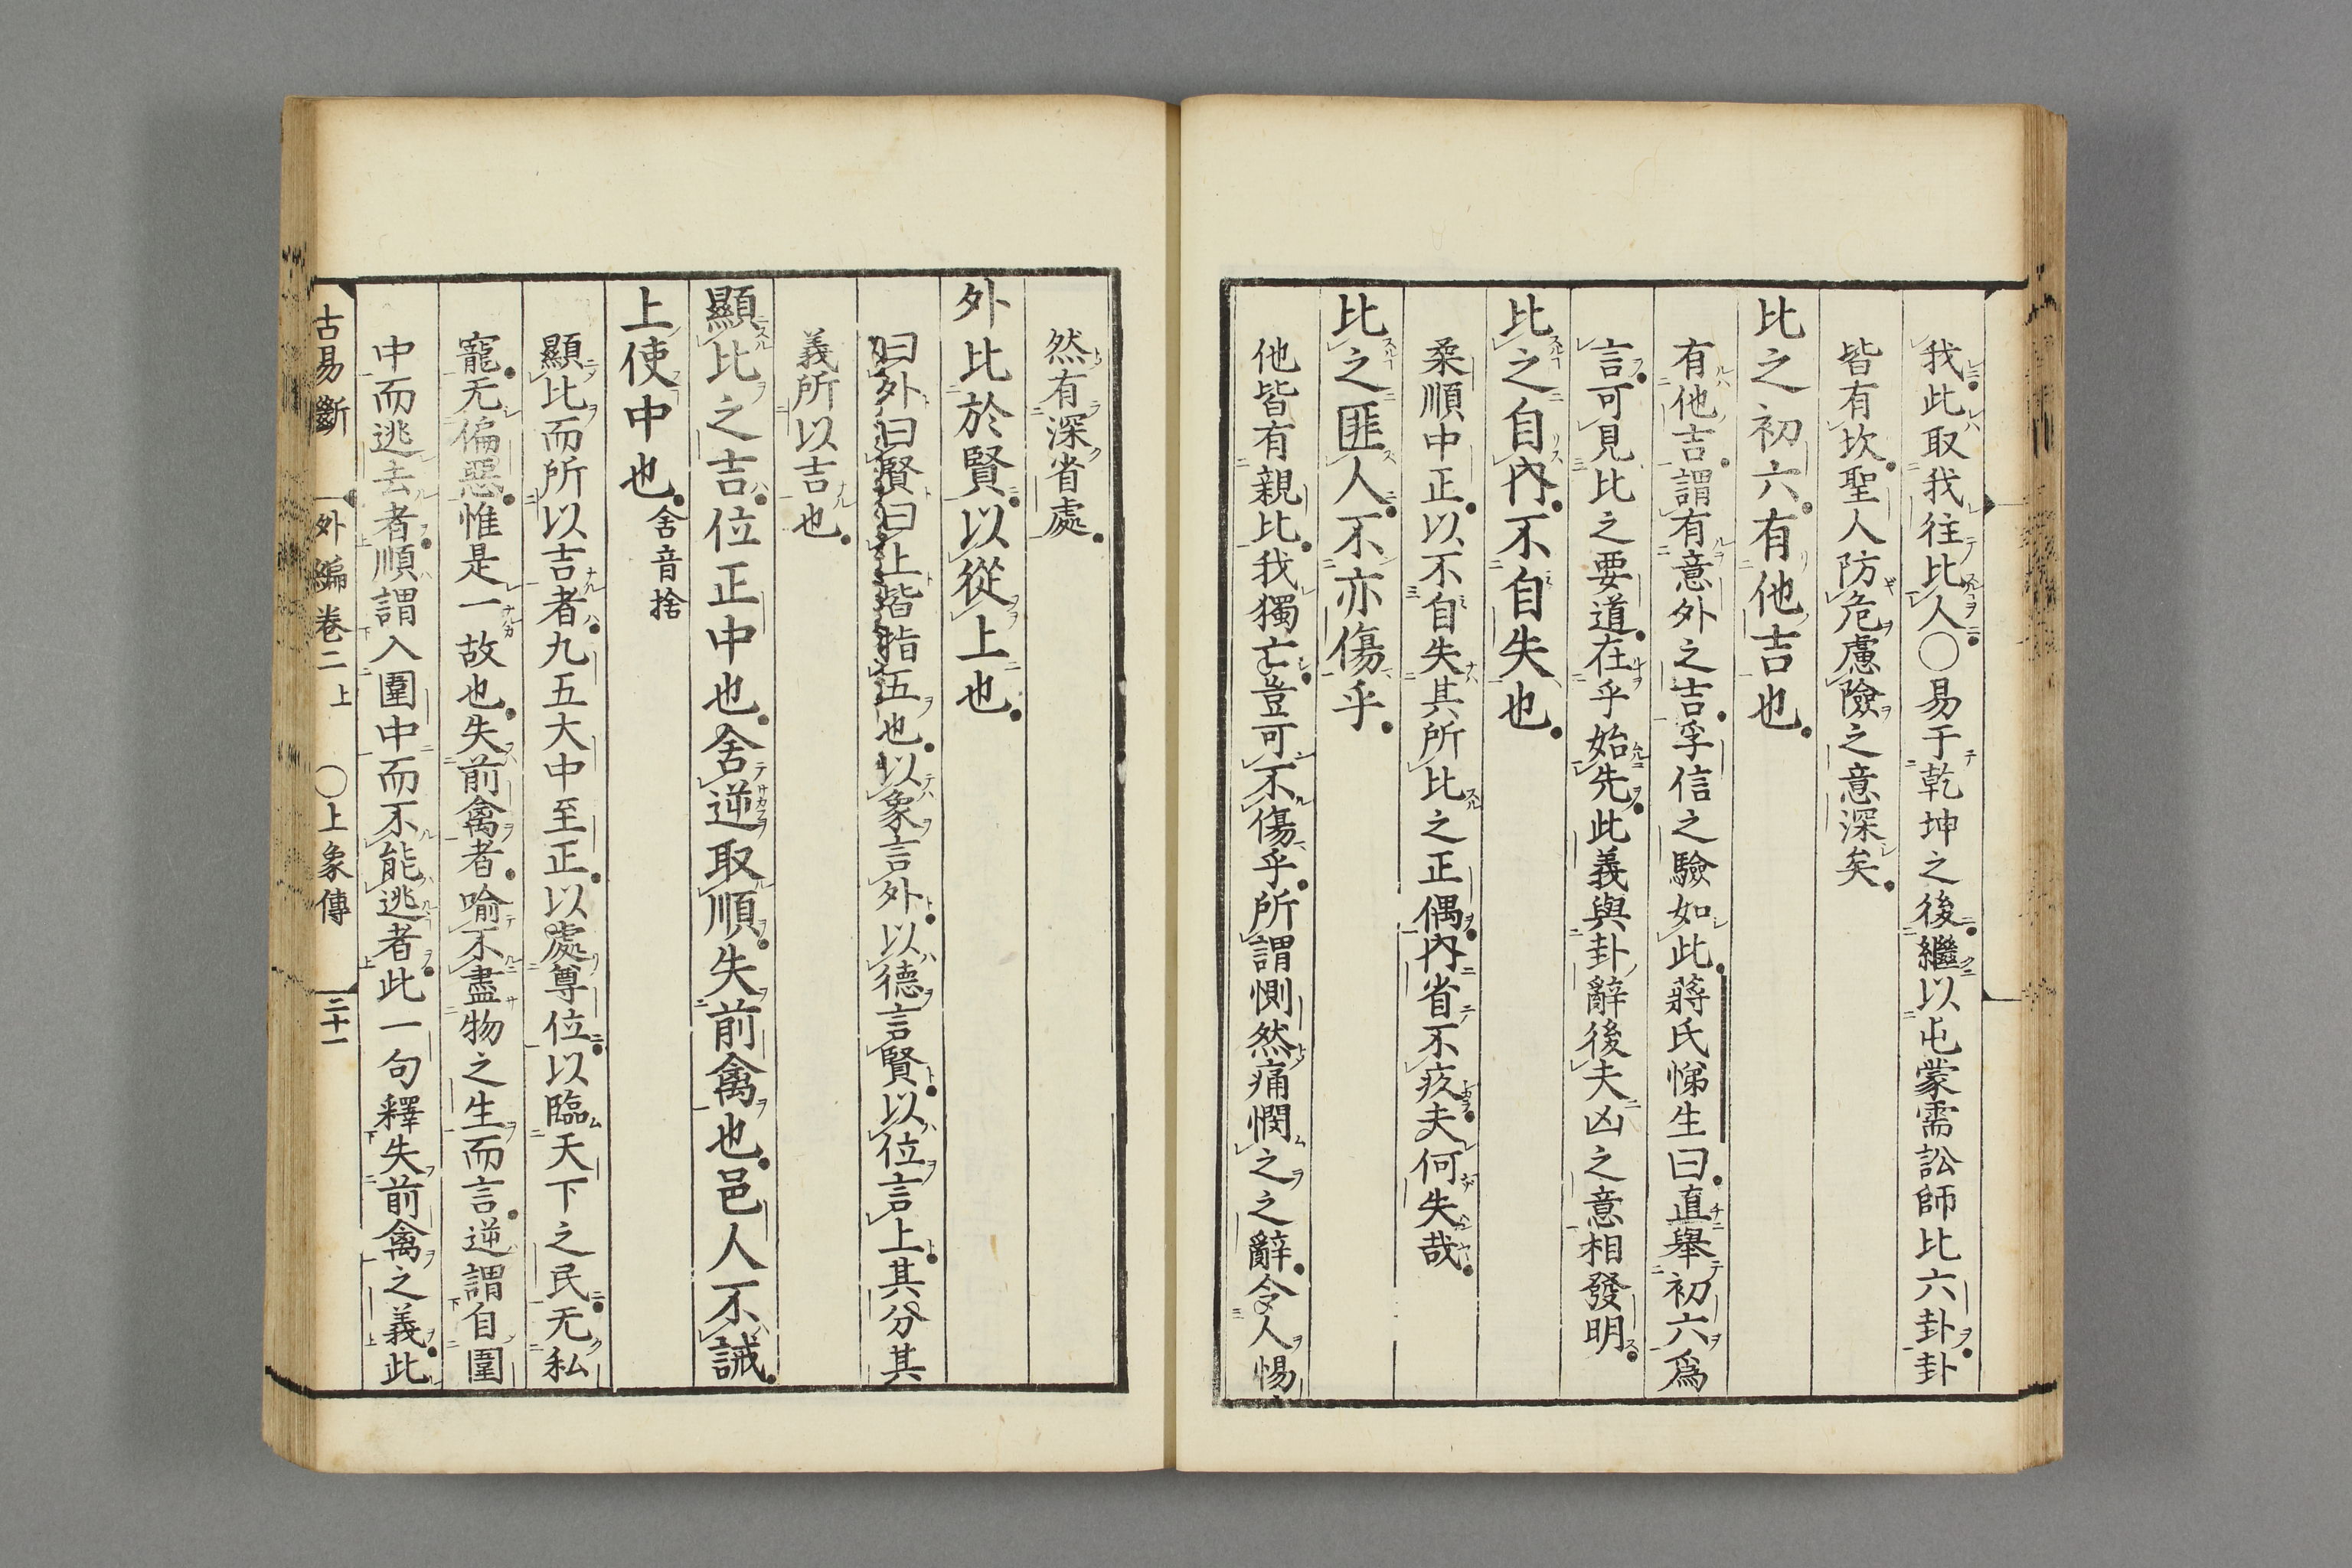 我此取我往比人〇易于乾坤之後繼以屯蒙需訟師比六卦卦
皆有坎聖人防危慮險之意深矣
比之初六有他吉也
有他吉謂有意外之吉孚信之驗如此蔣氏悌生曰直舉初六爲
言可見比之要道在乎始先此義與卦辭後夫凶之意相發明
比之自內不自失也
柔順中正以不自失其所比之正偶內省不疚夫何失哉
比之匪人不亦傷乎
他皆有親比我獨亡豈可不傷乎所謂惻然痛憫之之辭令人惕
然有深省處
外比於賢以從上也
曰外曰賢曰上皆指五也以象言外以德言賢以位言上其分其
義所以吉也
顯比之吉位正中也舍逆取順失前禽也邑人不誡
上使中也舍音捨
顯比而所以吉者九五大中至正以處尊位以臨天下之民无私
寵无偏惡惟是一故也失前禽者喻不盡物之生而言逆謂自圍
中而逃去者順謂入圍中而不能逃者此一句釋失前禽之義此
古易斷 外編卷二上 〇上象傳 三十一